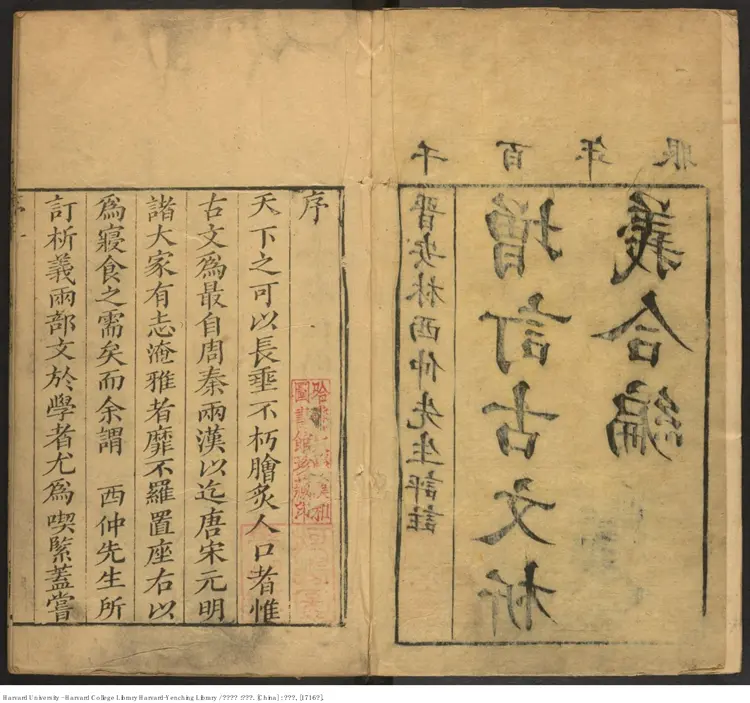 千百年眼
晉安林西仲先生評註
增訂古文析
義合編
序
天下之可以長垂不朽膾炙人口者惟
古文爲最自周秦兩漢以迄唐宋元明
諸大家有志淹雅者靡不羅置座右以
爲寢食之需矣而余謂 西仲先生所
訂析義兩部文於學者尤爲喫緊蓋嘗
哈佛大學漢和
圖書館珍藏印
Harvard University - Harvard College Library Harvard-Yenching Library / ???? : ???. [China] : ???, [1716?].